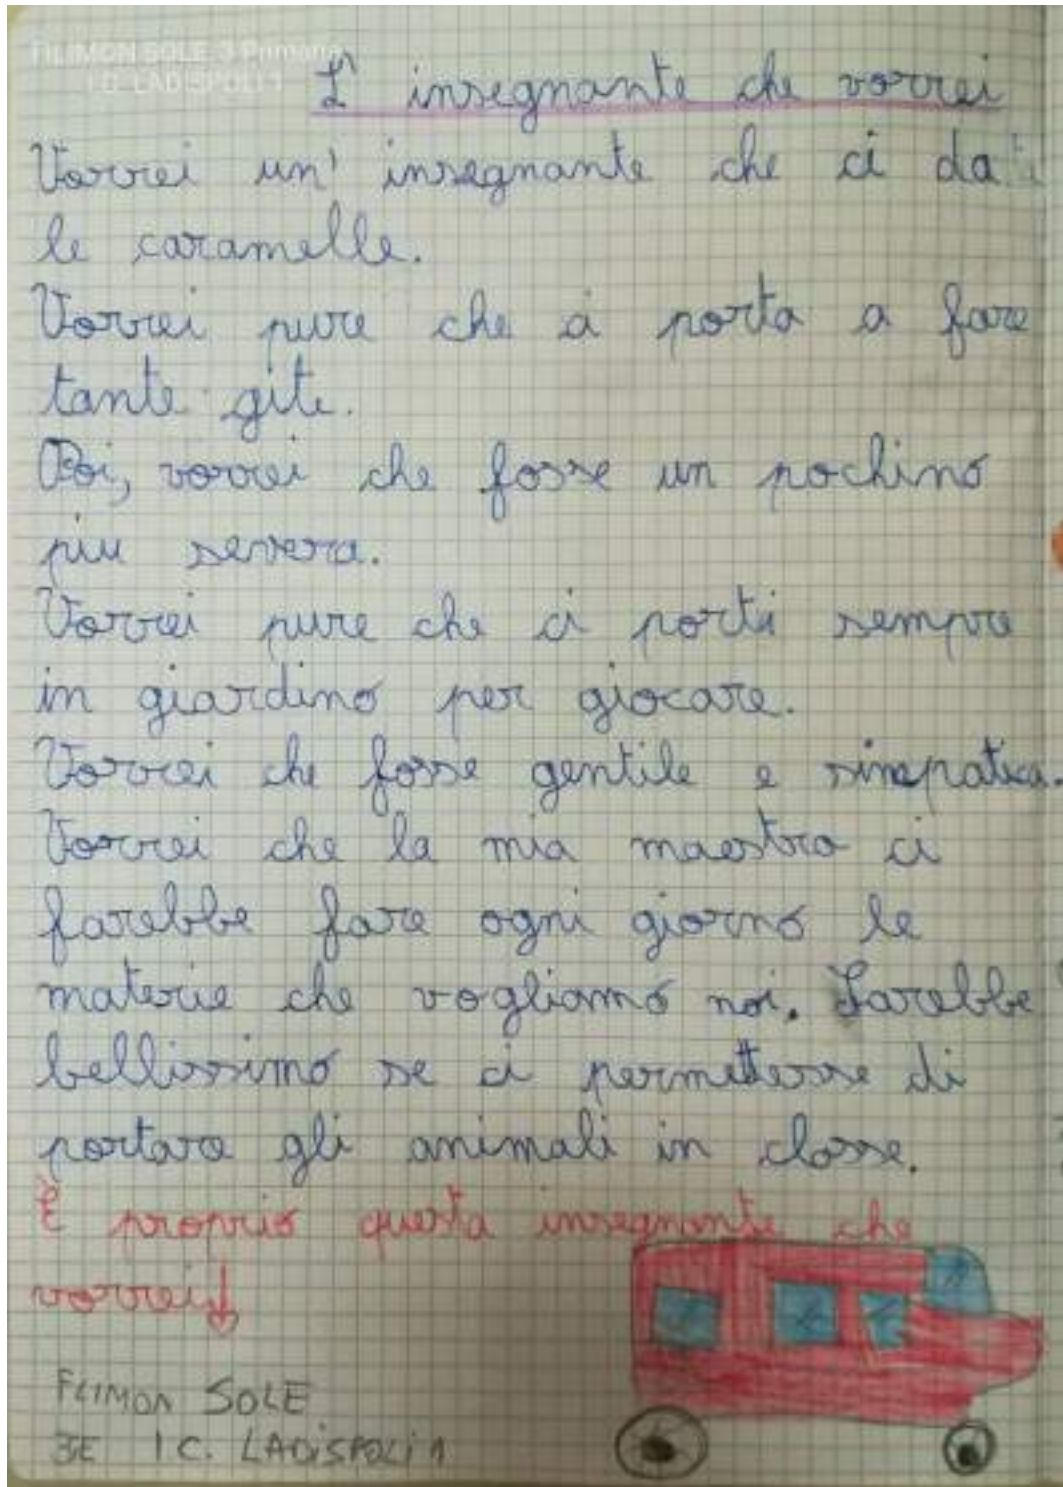 FILIMON SOLE 3 Primaria
I.C. LADISPOLI 1
L' insegnante che vorrei
Vorrei un' insegnante che ci da
le caramelle.
Vorrei pure che ci porta a fare
tante gite.
Poi, vorrei che fosse un pochino
più severa.
Vorrei pure che ci porti sempre
in giardino per giocare.
Vorrei che fosse gentile e simpatica.
Vorrei che la mia maestra ci
farebbe fare ogni giorno le
materie che vogliamo noi. Sarebbe
bellissimo se ci permettesse di
portare gli animali in classe.
È proprio questa insegnante che
vorrei
FLIMON SOLE
3E I C. LADISPOLI 1